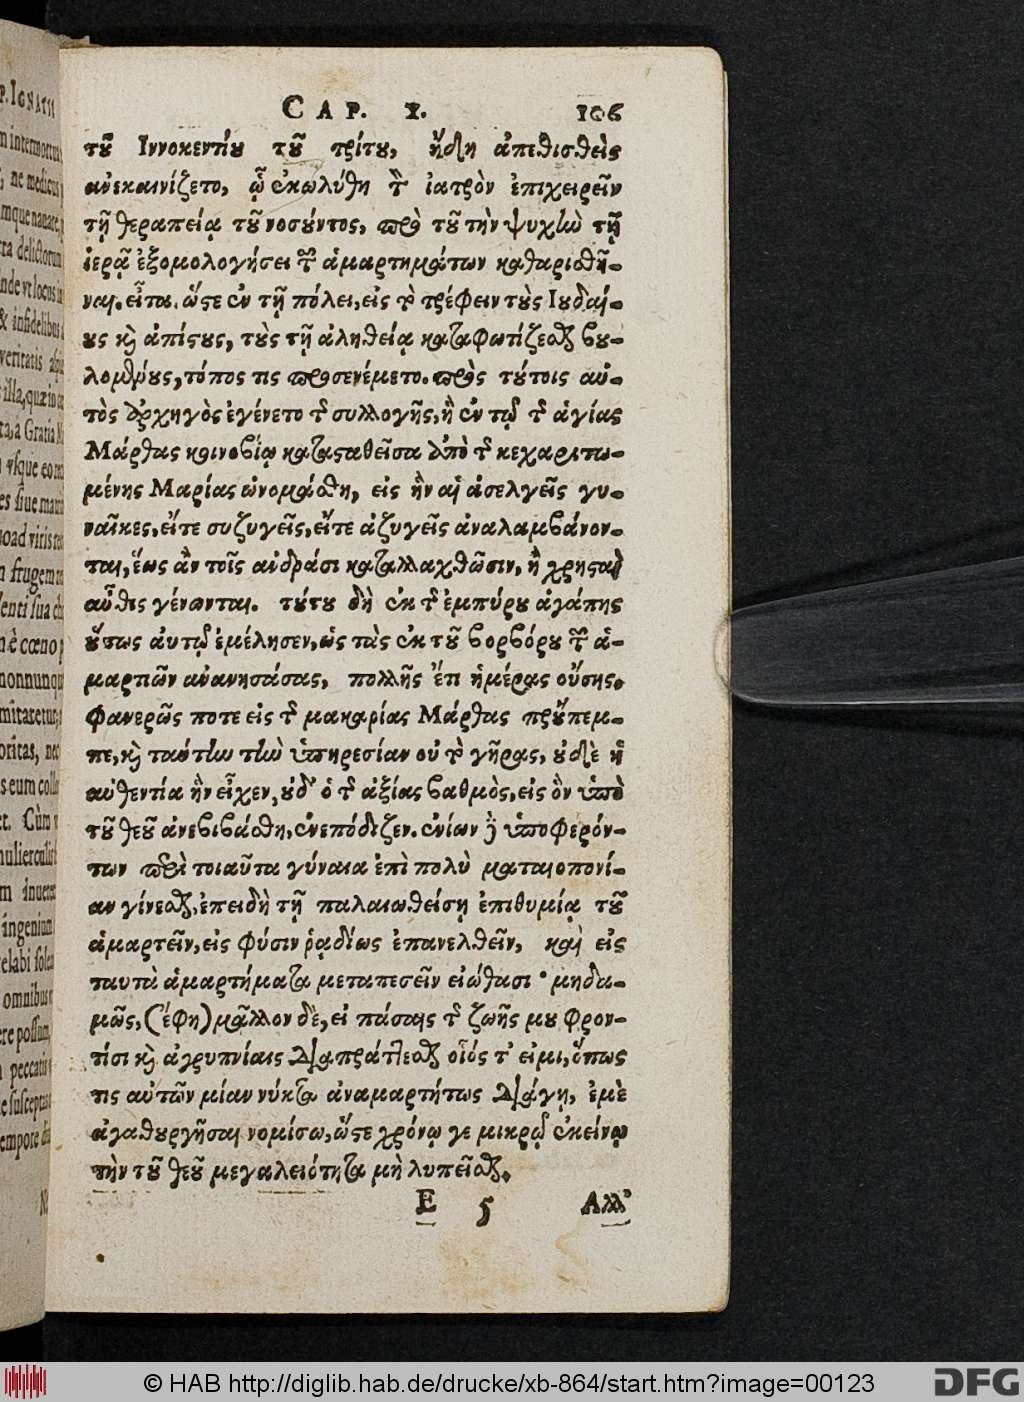 CAP. X. 106
τοῦ Ιννοκεντίου τοῦ τρίτου, ἤδη ἀπεθισθεὶς
ἀνεκαινίζετο, ᾧ ἐκωλύθη τὸν ἰατρὸν ἐπιχειρεῖν
τῇ θεραπείᾳ τοῦ νοσοῦντος, πρὸ τοῦ τὴν ψυχὴν τῇ
ἱερᾷ ἐξομολογήσει τῶν ἁμαρτημάτων καθαρισθῆ-
ναι. εἶτα. ὥστε ἐν τῇ πόλει, εἰς τὸ τρέφειν τοὺς Ιουδαί-
ους καὶ ἀπίστους, τοὺς τῇ ἀληθείᾳ καταφωτίζεσθαι βου-
λομένους, τόπος τις προσενέμετο. πρὸς τούτοις αὐ-
τὸς ἀρχηγὸς ἐγένετο τῆς συλλογῆς, ἣ ἐν τῷ τῆς ἁγίας
Μάρθας κοινοβίῳ κατασταθεῖσα ἀπὸ τῆς κεχαριτω-
μένης Μαρίας ὠνομάσθη, εἰς ἣν αἱ ἀσελγεῖς γυ-
ναῖκες, εἴτε συζυγεῖς, εἴτε ἀζυγεῖς ἀναλαμβάνον-
ται, ἕως ἂν τοῖς ἀνδράσι καταλλαχθῶσιν, ἢ χρησταὶ
αὖθις γένωνται. τούτου δὴ ἐκ τῆς ἐμπύρου ἀγάπης
οὕτως αὐτῷ ἐμέλησεν, ὡς τὰς ἐκ τοῦ βορβόρου τῶν ἁ-
μαρτιῶν ἀνανηστάσας, πολλῆς ἔπι ἡμέρας οὔσης.
Φανερῶς ποτε εἰς τῆς μακαρίας Μάρθας προὔπεμ-
πε, καὶ ταύτην τὴν ὑπηρεσίαν οὐ τὸ γῆρας, οὐδὲ ἡ
αὐθεντία ἣν εἶχεν, οὐδ' ὁ τῆς ἀξίας βαθμὸς, εἰς ὃν ὑπὸ
τοῦ θεοῦ ἀνεβιβάσθη, ἐνεπόδιζεν. ἐνίων δὲ ὑποφερόν-
των περὶ τοιαῦτα γύναια ἐπὶ πολὺ ματαιοπονί-
αν γίνεσθαι, ἐπειδὴ τῇ παλαιωθείσῃ ἐπιθυμίᾳ τοῦ
ἁμαρτεῖν, εἰς φύσιν ῥᾳδίως ἐπανελθεῖν, καὶ εἰς
ταυτὰ ἁμαρτήματα μεταπεσεῖν εἰώθασι· μηδα-
μῶς, (ἔφη) μᾶλλον δὲ, εἰ πάσαις τῆς ζωῆς μου φρον-
τίσι καὶ ἀγρυπνίαις διαπράττεσθαι οἷός τ' εἰμι, ὅπως
τις αὐτῶν μίαν νύκτα ἀναμαρτήτως διάγῃ, ἐμὲ
ἀγαθουργῆσαι νομίσω, ὥστε χρόνῳ γε μικρῷ ἐκείνῳ
τὴν τοῦ θεοῦ μεγαλειότητα μὴ λυπεῖσθαι.
E 5 Αλλ'
P. IGNATII
© HAB http://diglib.hab.de/drucke/xb-864/start.htm?image=00123
DFG